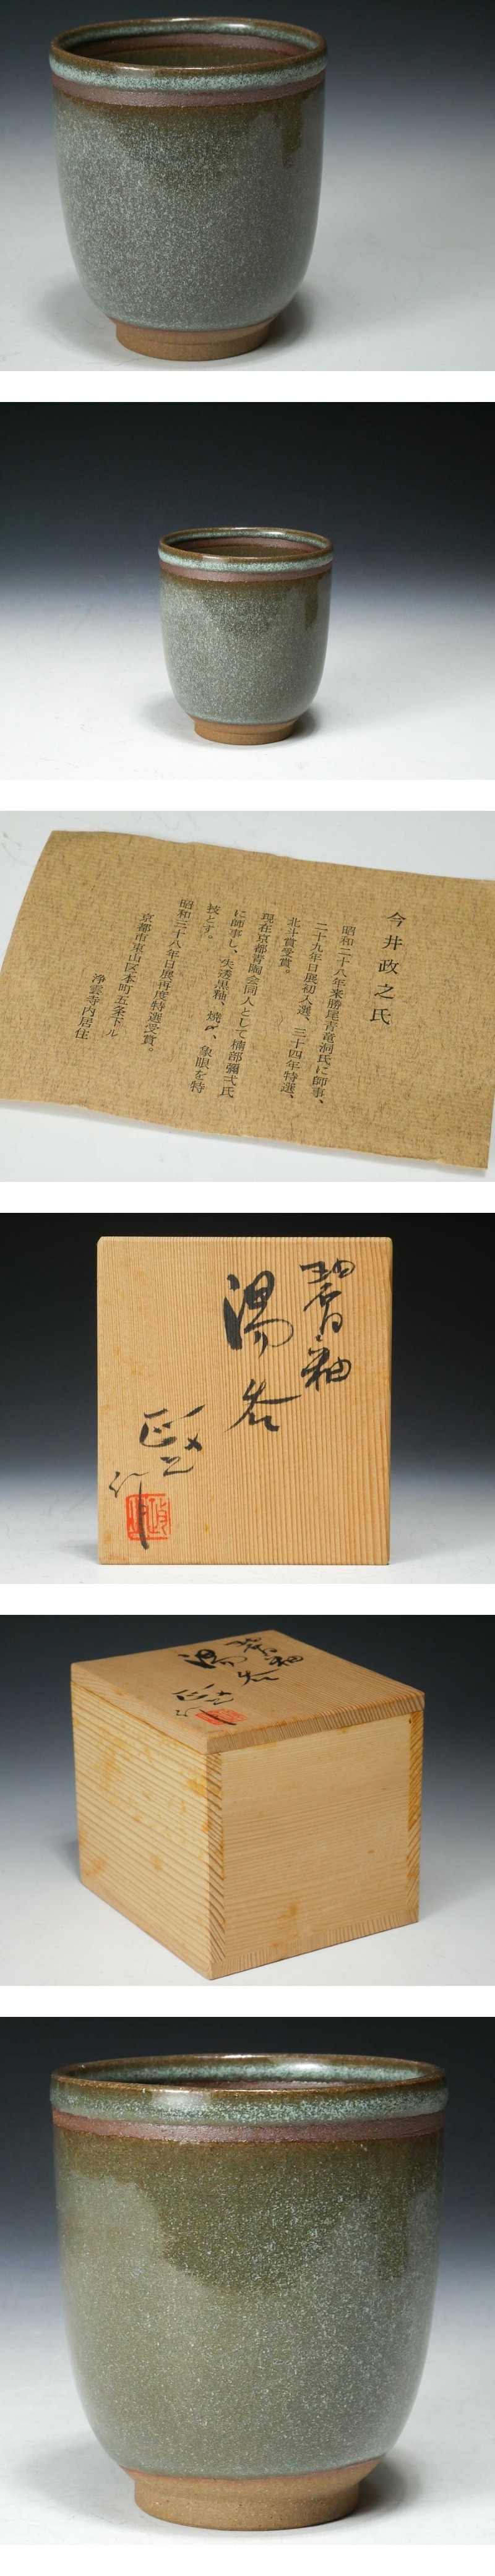 今井政之氏
昭和二十八年来勝尾青龍洞氏に師事、
二十九年日展初入選、三十四年特選、
北斗賞受賞。
現在京都青陶会同人として楠部彌弌氏
に師事し、失透黒釉、焼〆、象眼を特
技とす。
昭和三十八年日展再度特選受賞。
京都市東山区本町五条下ル
浄雲寺内居住
碧釉
湯呑
政之
作
碧釉
湯呑
政之
作